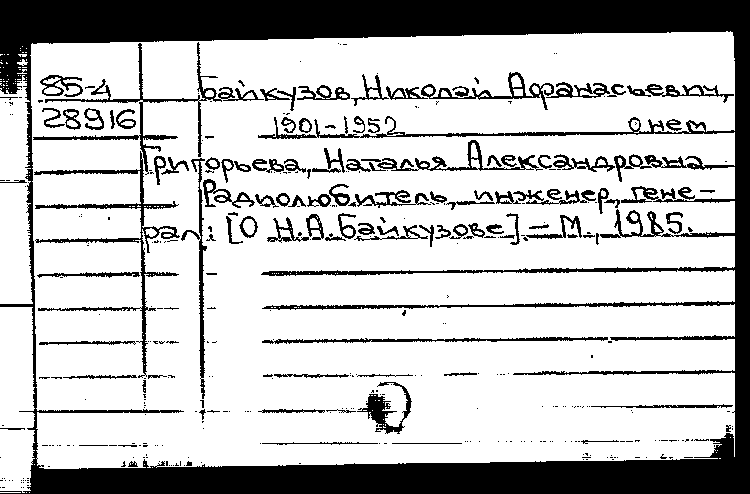 85-4 Байкузов, Николай Афанасьевич,
28916 1901-1952 О нем
Григорьева, Наталья Александровна
Радиолюбитель, инженер, гене-
рал: [О Н.А.Байкузове]. - М., 1985.